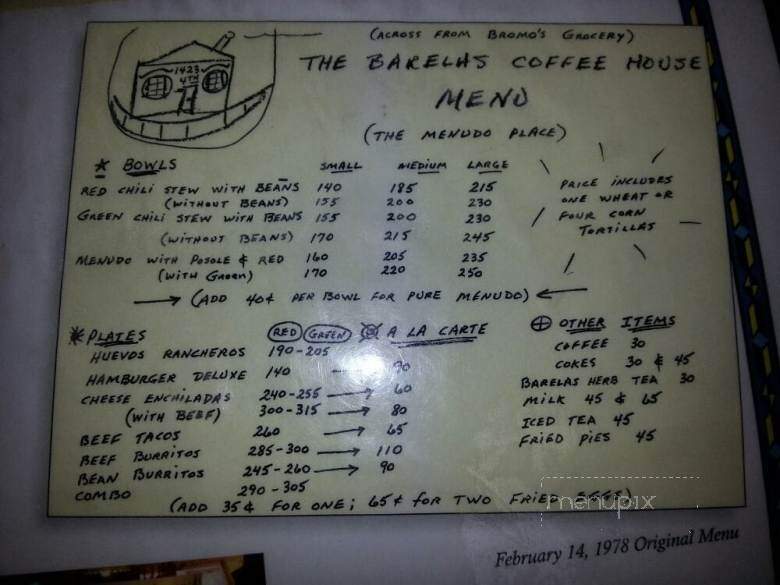 (ACROSS FROM BROMO'S GROCERY)
1423
4TH
THE BARELAS COFFEE HOUSE
MENU
(THE MENUDO PLACE)
* BOWLS SMALL MEDIUM LARGE
RED CHILI STEW WITH BEANS 140 185 215
(WITHOUT BEANS) 155 200 230
GREEN CHILI STEW WITH BEANS 155 200 230
(WITHOUT BEANS) 170 215 245
MENUDO WITH POSOLE & RED 160 205 235
(WITH GREEN) 170 220 250
PRICE INCLUDES
ONE WHEAT OR
FOUR CORN
TORTILLAS
→ (ADD 40¢ PER BOWL FOR PURE MENUDO) ←
* PLATES RED GREEN A LA CARTE
HUEVOS RANCHEROS 190-205
HAMBURGER DELUXE 140 → 90
CHEESE ENCHILADAS 240-255 → 60
(WITH BEEF) 300-315 → 80
BEEF TACOS 260 → 65
BEEF BURRITOS 285-300 → 110
BEAN BURRITOS 245-260 → 90
COMBO 290-305
OTHER ITEMS
COFFEE 30
COKES 30 & 45
BARELAS HERB TEA 30
MILK 45 & 65
ICED TEA 45
FRIED PIES 45
(ADD 35¢ FOR ONE; 65¢ FOR TWO FRIED EGGS)
menupix
February 14, 1978 Original Menu